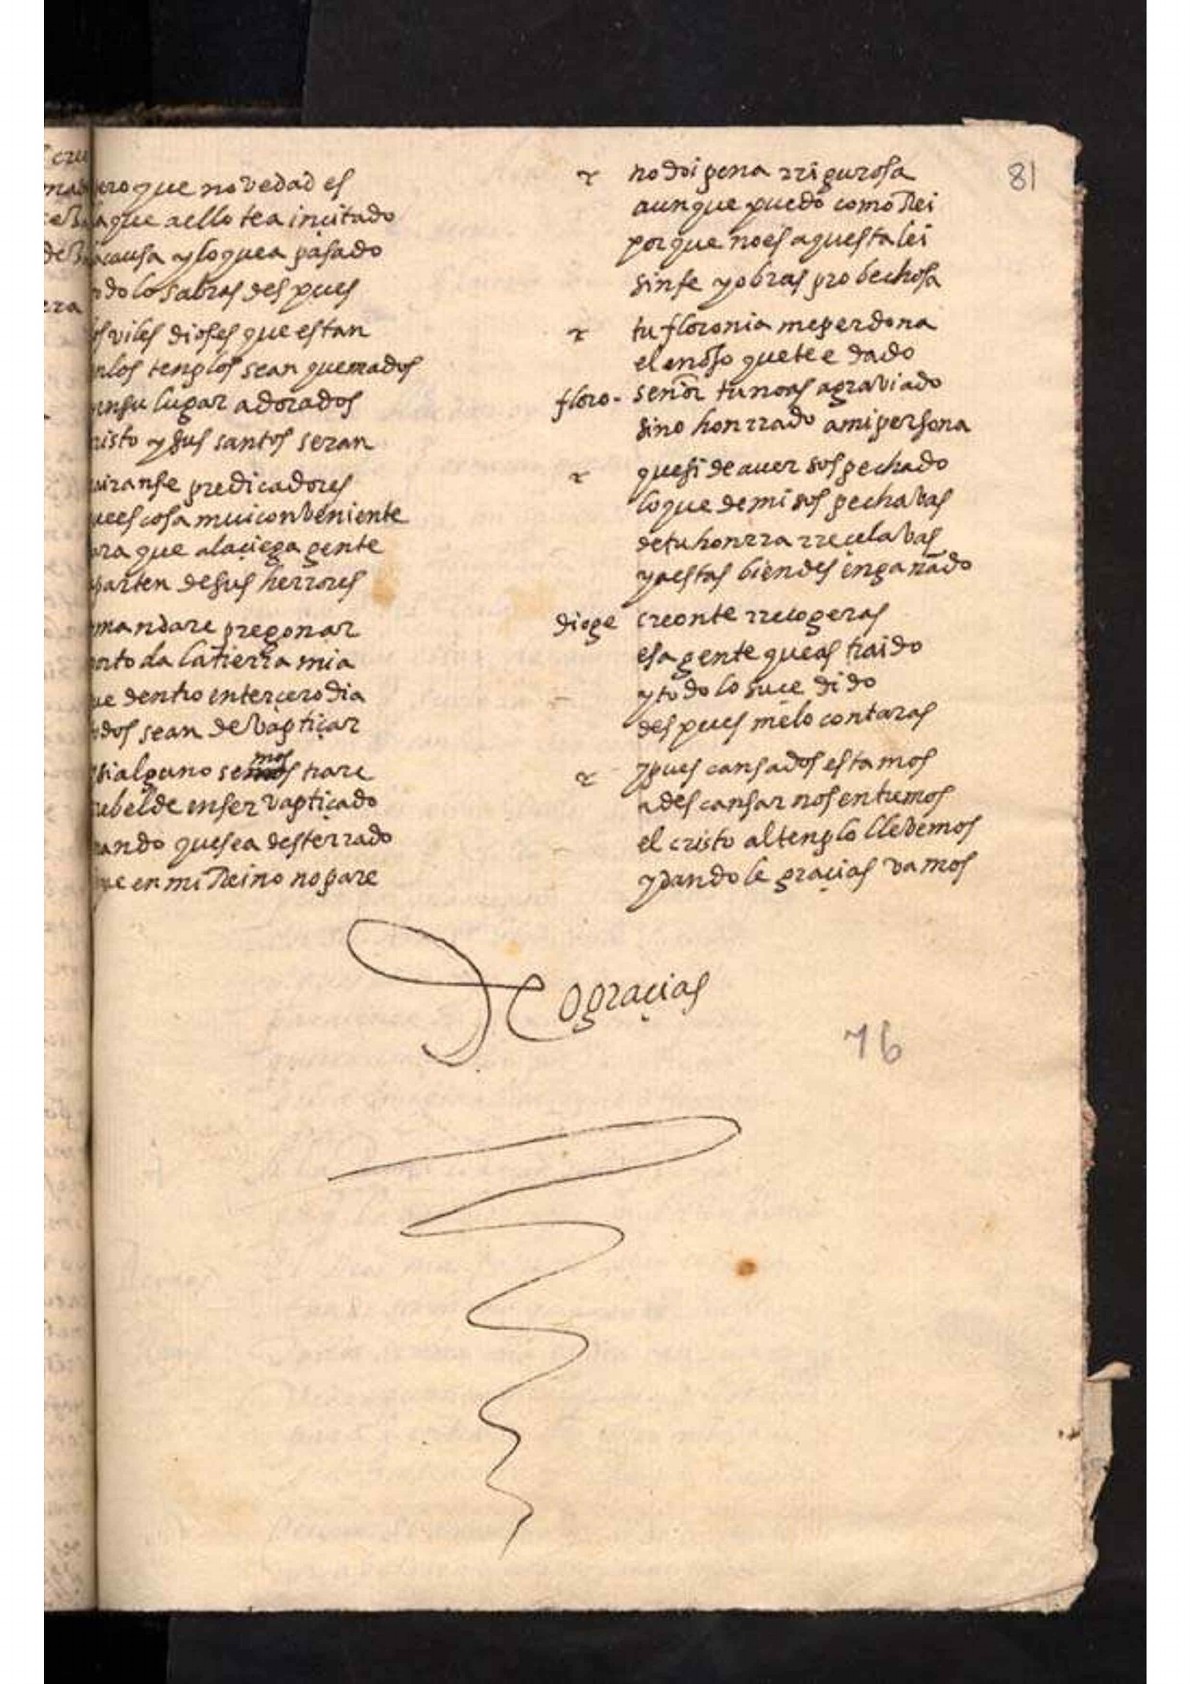 81
ero que novedad es
a que aello tea inçitado
acausa yloquea pasado
odo lo sabras des pues
os viles dioses que estan
nlos templos sean quemados
ensu lugar adorados
risto y sus santos seran
airanse predicadores
uees cosa mui conveniente
ara que alaçiega gente
parten desus herrores
mandare pregonar
orto da latierra mia
ue dentro enterçero dia
odos sean de vaptiçar
si alguno se mos trare
rebelde enser vaptiçado
mando quesea desterrado
que en mi Reino no pare
r no doi pena rrigurosa
aunque puedo como Rei
porque noes aquesta lei
sin fe y obras pro bechosa
r tu floronia me perdona
el enojo quete e dado
floro- señor tu noas agraviado
sino honrrado ami persona
r quesi de aver sos pechado
loque de mi sos pechavas
detu honrra rreçelavas
yaestas bien des engañado
dioge creonte rrecogeras
esa gente queas traido
y todo lo suce dido
des pues melo contaras
r ypues cansados estamos
a des cansar nos entremos
el cristo al templo llevemos
y dando le graçias vamos
Deo graçias
76